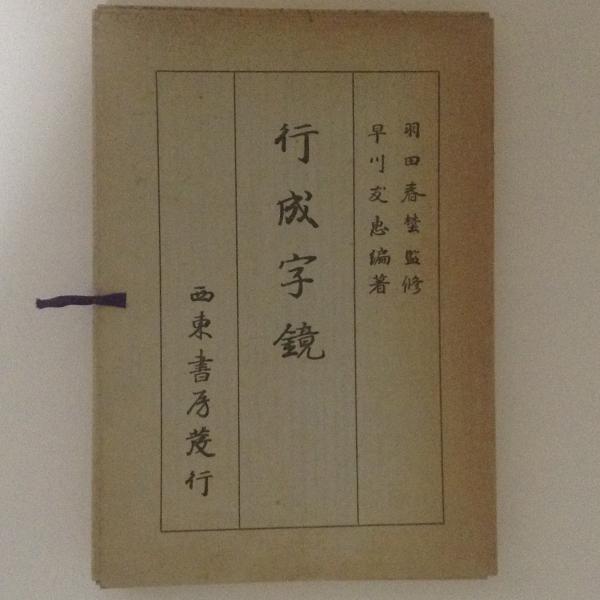 羽田春埜監修
早川友恵編著
行成字鏡
西東書房發行